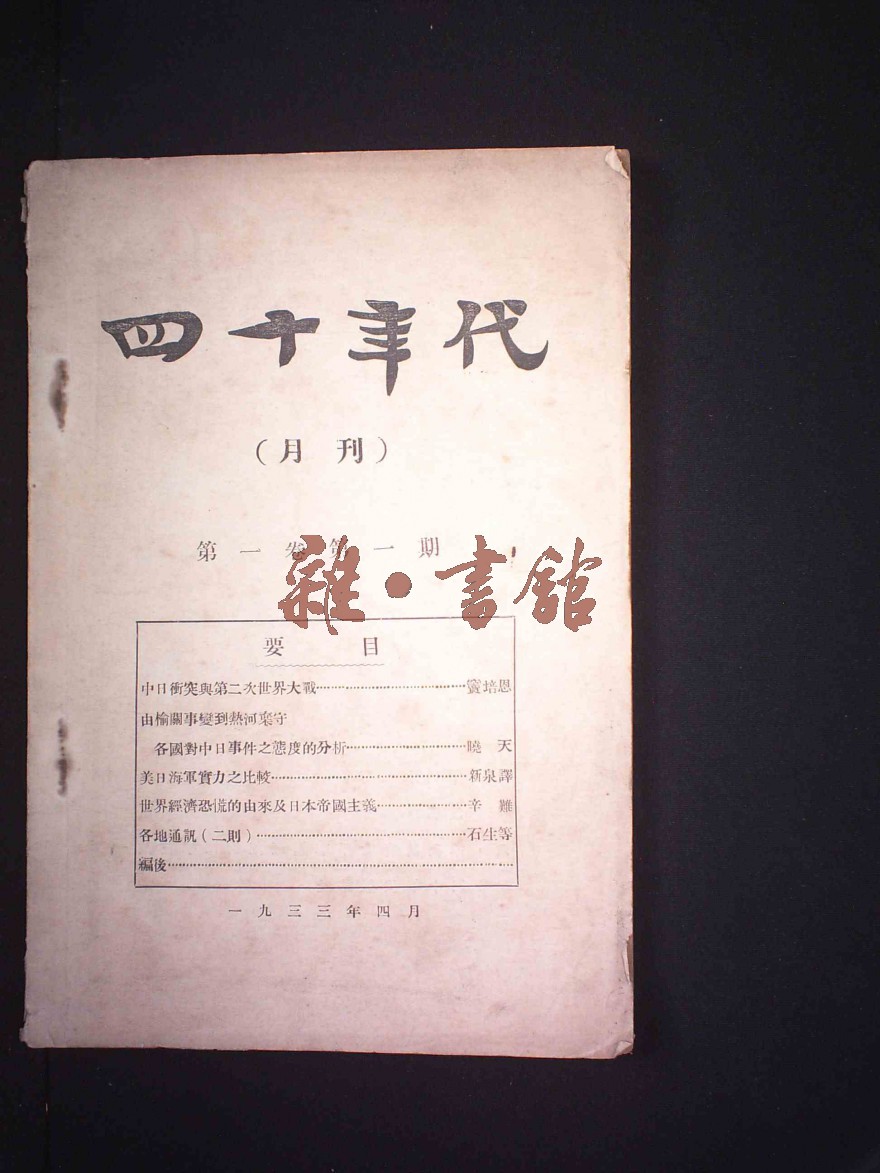 四十年代
(月刊)
第一卷第一期
雜•書館
要目
中日衝突與第二次世界大戰⋯⋯⋯⋯竇培恩
由榆關事變到熱河棄守
各國對中日事件之態度的分析⋯⋯⋯⋯曉天
美日海軍實力之比較⋯⋯⋯⋯新泉譯
世界經濟恐慌的由來及日本帝國主義⋯⋯⋯⋯辛雖
各地通訊(二則)⋯⋯⋯⋯石生等
編後⋯⋯⋯⋯
一九三三年四月